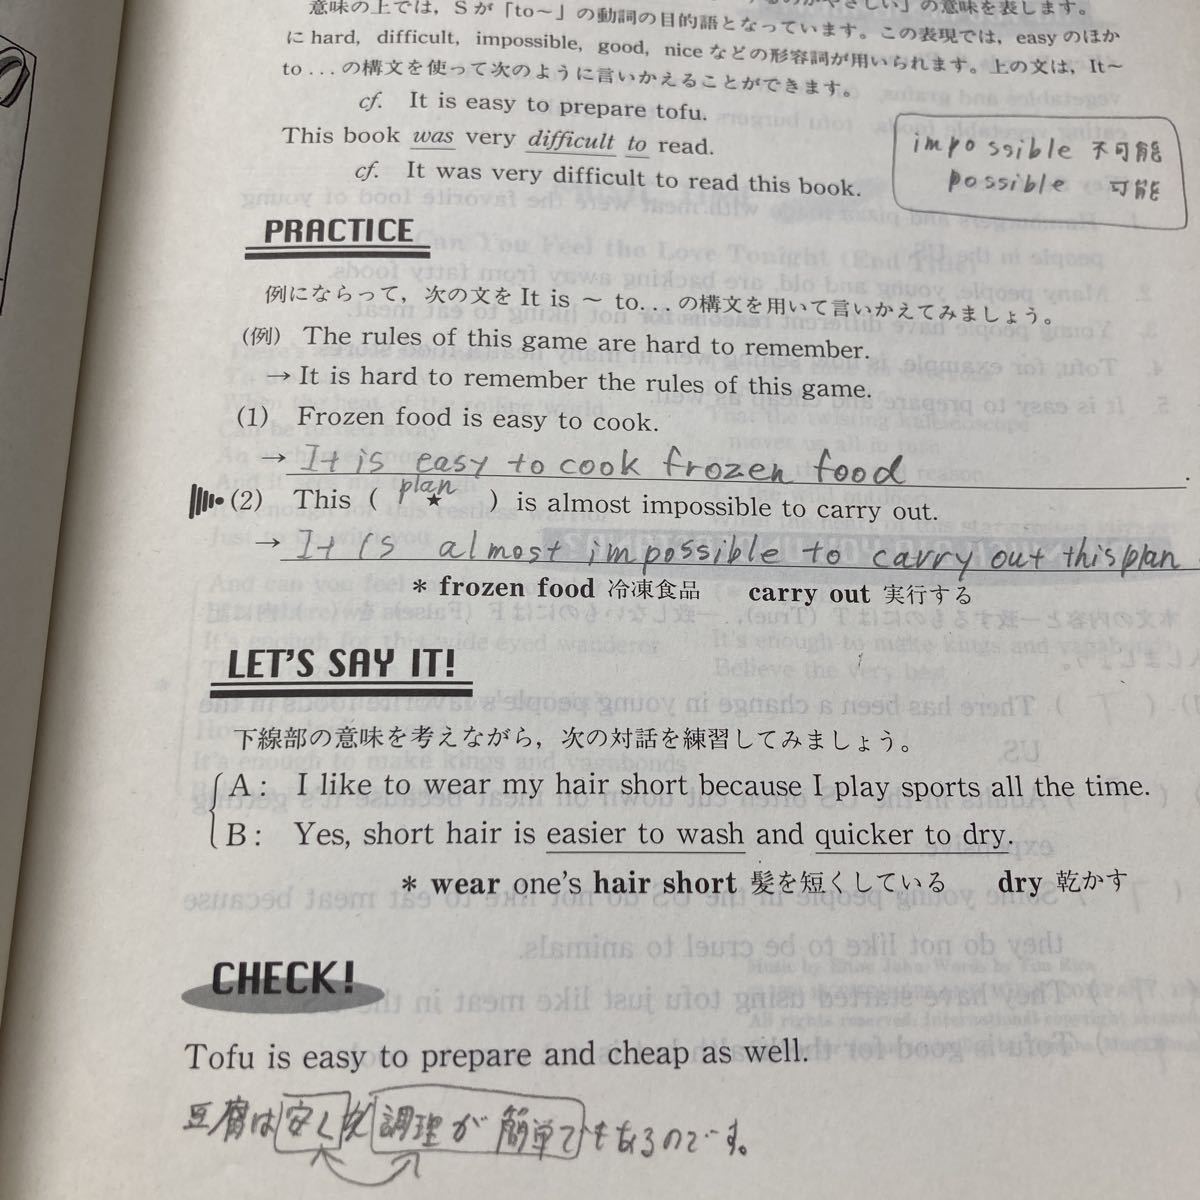 意味の上では，Sが「to～」の動詞の目的語となっています。この表現では，easyのほか
にhard, difficult, impossible, good, niceなどの形容詞が用いられます。上の文は，It～
to...の構文を使って次のように言いかえることができます。
cf. It is easy to prepare tofu.
This book was very difficult to read.
cf. It was very difficult to read this book.
impossible 不可能
possible 可能
PRACTICE
例にならって，次の文をIt is ～ to...の構文を用いて言いかえてみましょう。
(例) The rules of this game are hard to remember.
→ It is hard to remember the rules of this game.
(1) Frozen food is easy to cook.
→ It is easy to cook frozen food.
(2) This ( plan ★ ) is almost impossible to carry out.
→ It is almost impossible to carry out this plan
* frozen food 冷凍食品 carry out 実行する
LET'S SAY IT!
下線部の意味を考えながら，次の対話を練習してみましょう。
A: I like to wear my hair short because I play sports all the time.
B: Yes, short hair is easier to wash and quicker to dry.
* wear one's hair short 髪を短くしている dry 乾かす
CHECK!
Tofu is easy to prepare and cheap as well.
豆腐は安く 調理が簡単でもあるのです。